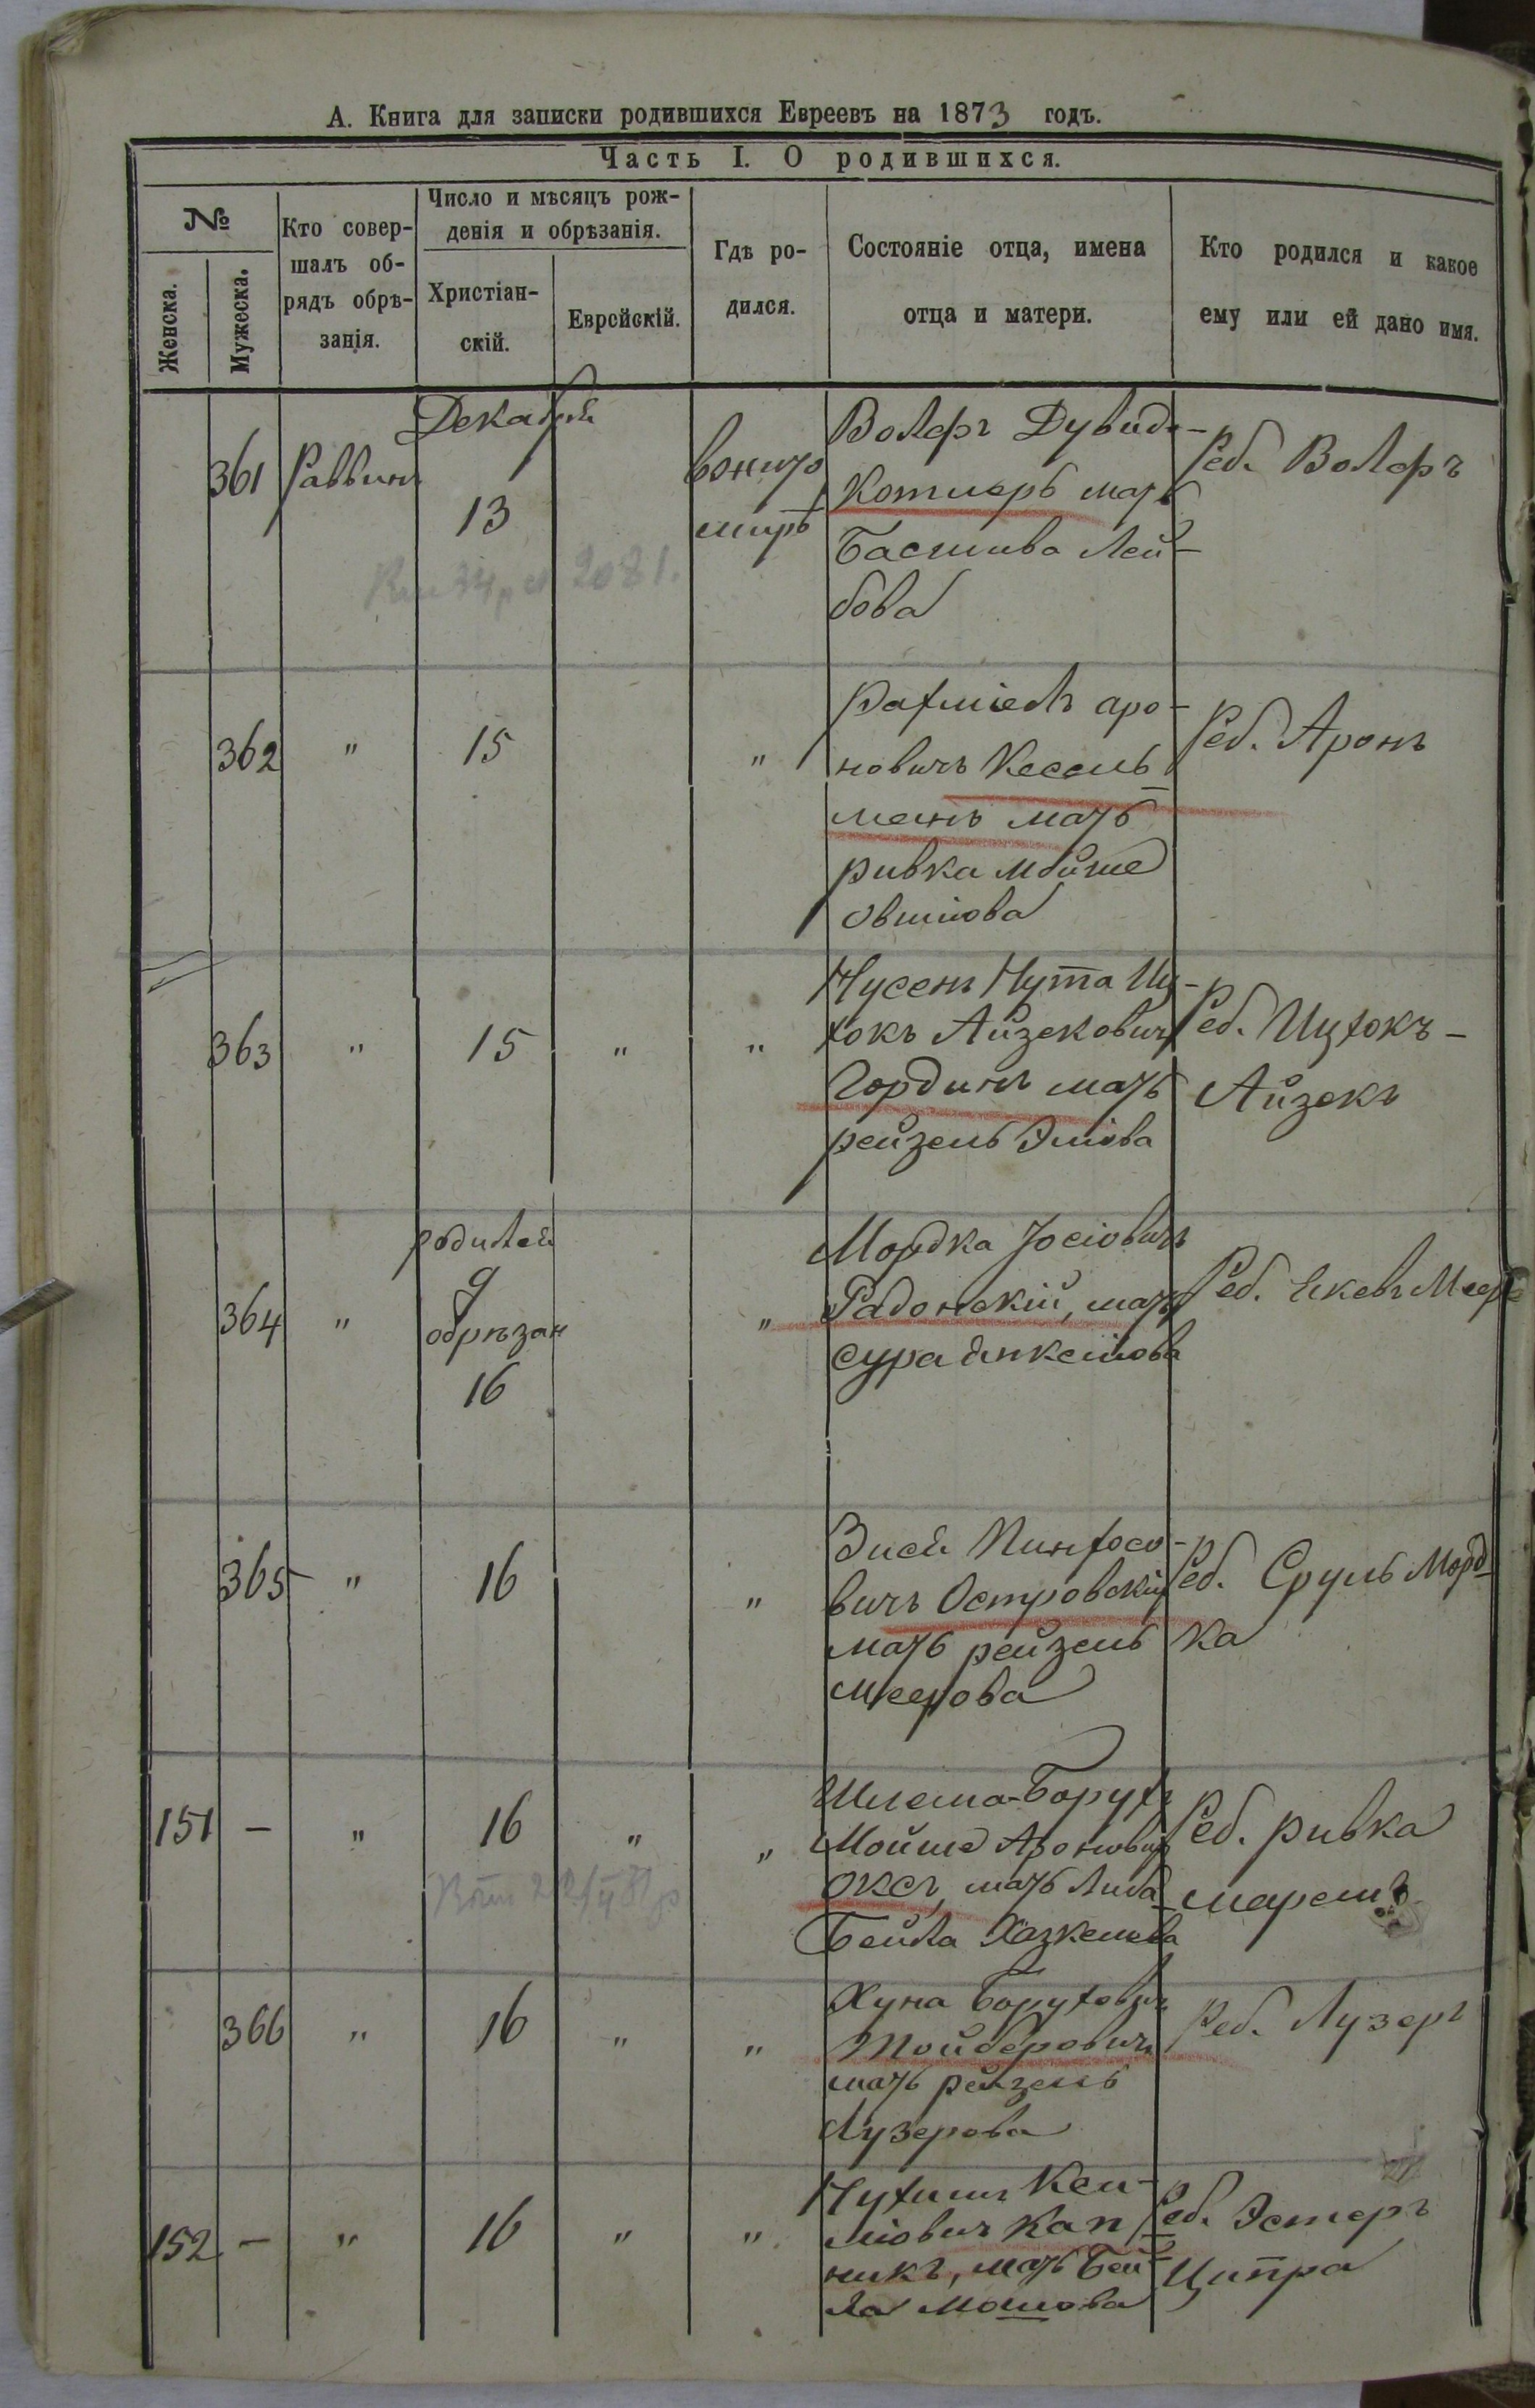 А. Книга для записки родившихся Евреевъ на 1873 годъ.
Часть I. О родившихся.
№
Женска.
Мужеска.
Кто совер-
шалъ об-
рядъ обрѣ-
занія.
Число и мѣсяцъ рож-
денія и обрѣзанія.
Христіан-
скій.
Еврейскій.
Гдѣ ро-
дился.
Состояніе отца, имена
отца и матери.
Кто родился и какое
ему или ей дано имя.
Декабрь
361 Раввинъ
13
Волфъ Дувидъ-
Котлеръ мать
Басшива Лей-
бова
Реб. Волфъ
362 " 15 "
аро-
новичъ Кесель-
манъ мать
ривка мойше
Реб. Аронъ
363 " 15 " "
Нусенъ Нута Иц-
хокъ Айзековичъ
Гординъ мать
рейзель
Реб. Ицхокъ-
Айзекъ
364 "
9
обрѣзан
16
"
Мордка Іосіовичъ
мать
сура
Реб.
365 " 16 "
Зисъ Пинхосо-
вичъ Островскій
мать рейзель
меерова
Реб. Сруль Морд-
ка
151 - " 16 " "
Шлема-Борухъ
Мойше Ароновичъ
Оксъ, мать Либа-
Бейла Хазкелева
Реб. ривка
366 " 16 " "
Хуна Боруховичъ
Тойберовичъ
мать рейзель
Лузерова
Реб. Лузеръ
152 - " 16 " "
Нухимъ
Кап-
никъ, мать Бей-
ла Мошова
Реб. Эстеръ
Ципра